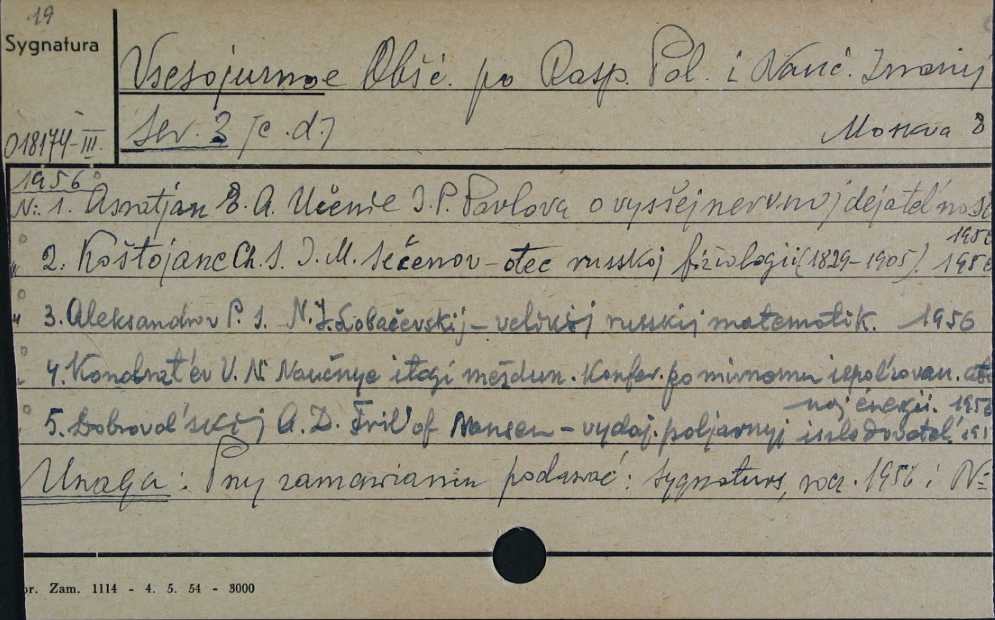 19
Sygnatura
018174-III.
Vsesojuznoe Obšč. po Rasp. Pol. i Nauč. Znanij
Ser. 3 (c.d.) Moskva 8
1956
Nr. 1. Asratjan E. A. Učenie I. P. Pavlova o vysšej nervnoj dejatel'nosti
1956
2. Koštojanc Ch. S. I. M. Sečenov - otec russkoj fiziologii (1829-1905). 1956
3. Aleksandrov P. S. N. I. Lobačevskij - velikij russkij matematik. 1956
4. Kondrat'ev V. N. Naučnye itogi meždun. Konfer. po mirnomu ispol'zovan. ato
noj energii. 1956
5. Dobrovol'skij A. D. Frit'of Nansen - vydaj. poljarnyj issledovatel' 195
Uwaga: Przy zamawianiu podawać: sygnaturę, rocz. 1956 i Nr
or. Zam. 1114 - 4. 5. 54 - 3000